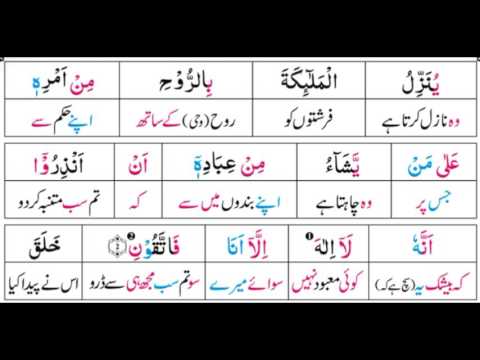 يُنَزِّلُ الْمَلٰٓئِكَةَ بِالرُّوْحِ مِنْ اَمْرِهٖ
وہ نازل کرتا ہے فرشتوں کو روح (وحی) کے ساتھ اپنے حکم سے
عَلٰى مَنْ يَّشَآءُ مِنْ عِبَادِهٖٓ اَنْ اَنْذِرُوْٓا
جس پر وہ چاہتا ہے اپنے بندوں میں سے کہ تم سب متنبہ کردو
اَنَّهٗ لَآ اِلٰهَ ❶ اِلَّآ اَنَا فَاتَّقُوْنِ ❷ ۝۲ خَلَقَ
کہ بیشک یہ (سچ ہے کہ) کوئی معبود نہیں سوائے میرے سو تم سب مجھ ہی سے ڈرو اس نے پیدا کیا